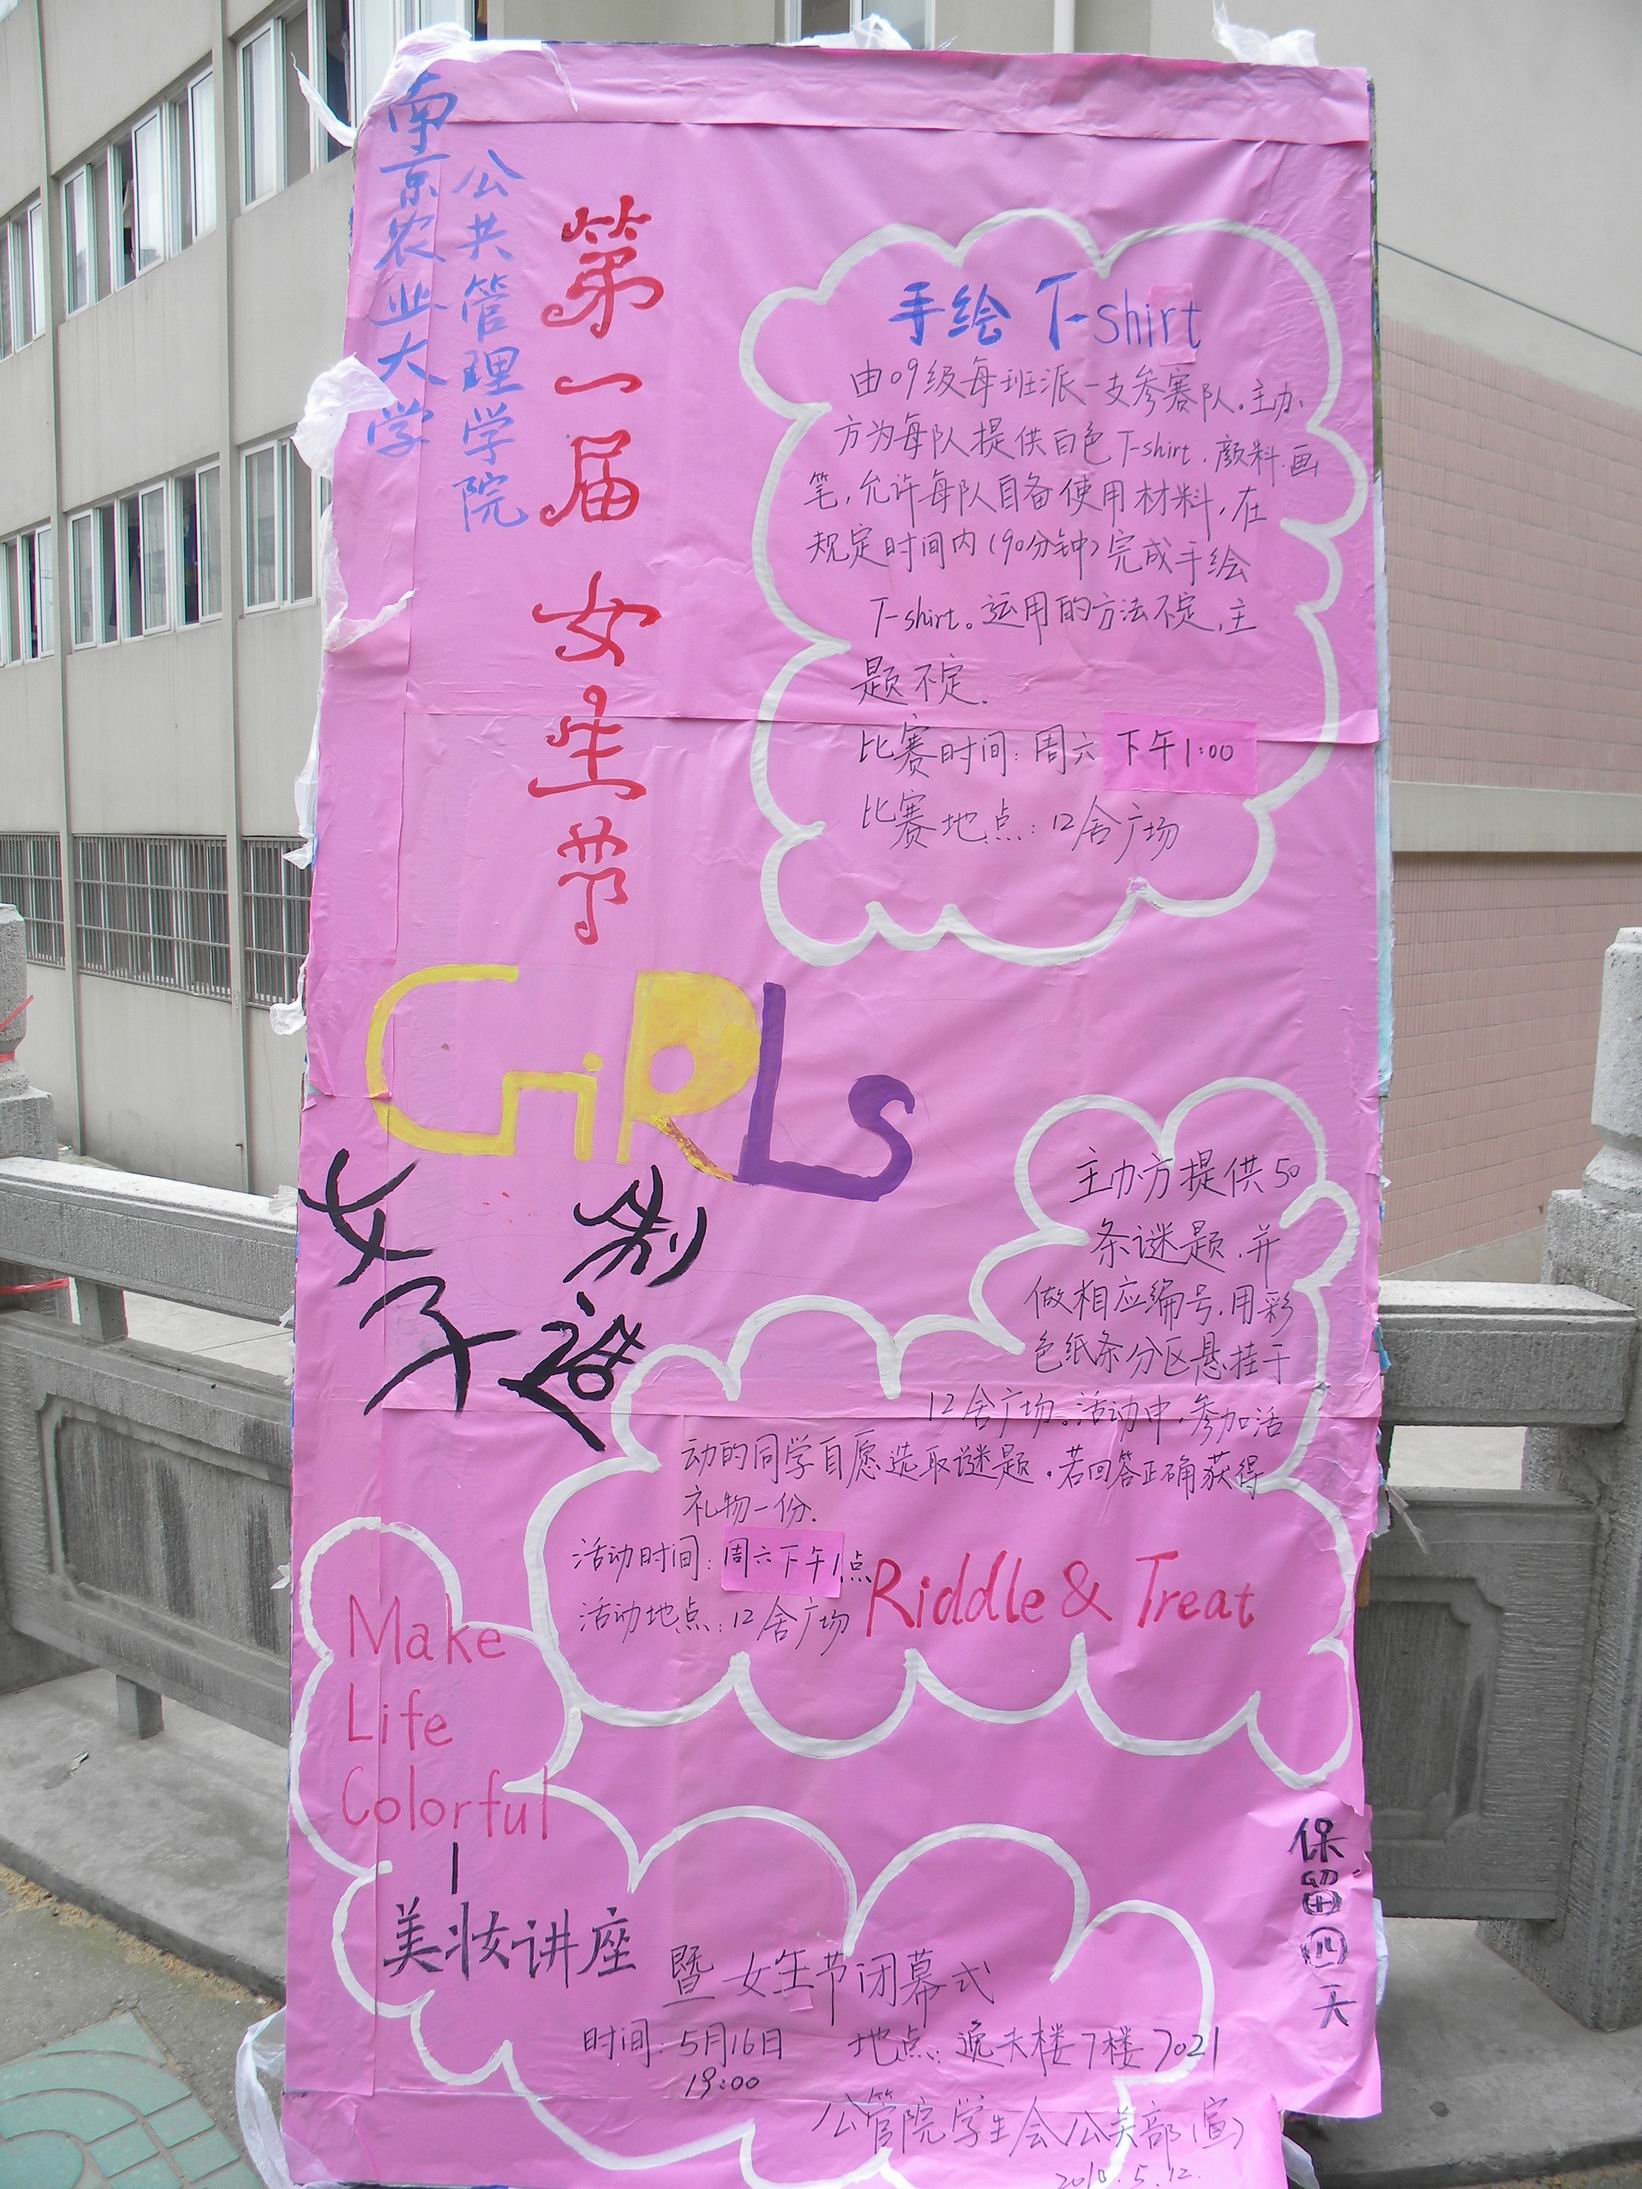 南京农业大学
公共管理学院
第一届女生节
手绘 T-shirt
由09级每班派一支参赛队。主办
方为每队提供白色T-shirt、颜料、画
笔，允许每队自备使用材料，在
规定时间内(90分钟)完成手绘
T-shirt。运用的方法不定，主
题不定.
比赛时间：周六下午1:00
比赛地点：12舍广场
GiRLs
女子
制造
主办方提供50
条谜题，并
做相应编号，用彩
色纸条分区悬挂于
12舍广场。活动中，参加活
动的同学自愿选取谜题，若回答正确获得
礼物一份.
活动时间：周六下午1点
活动地点：12舍广场
Riddle & Treat
Make
Life
Colorful
美妆讲座
暨女生节闭幕式
时间：5月16日
19:00
地点：逸夫楼7楼7021
公管院学生会公关部(宣)
2010.5.12.
保留四天